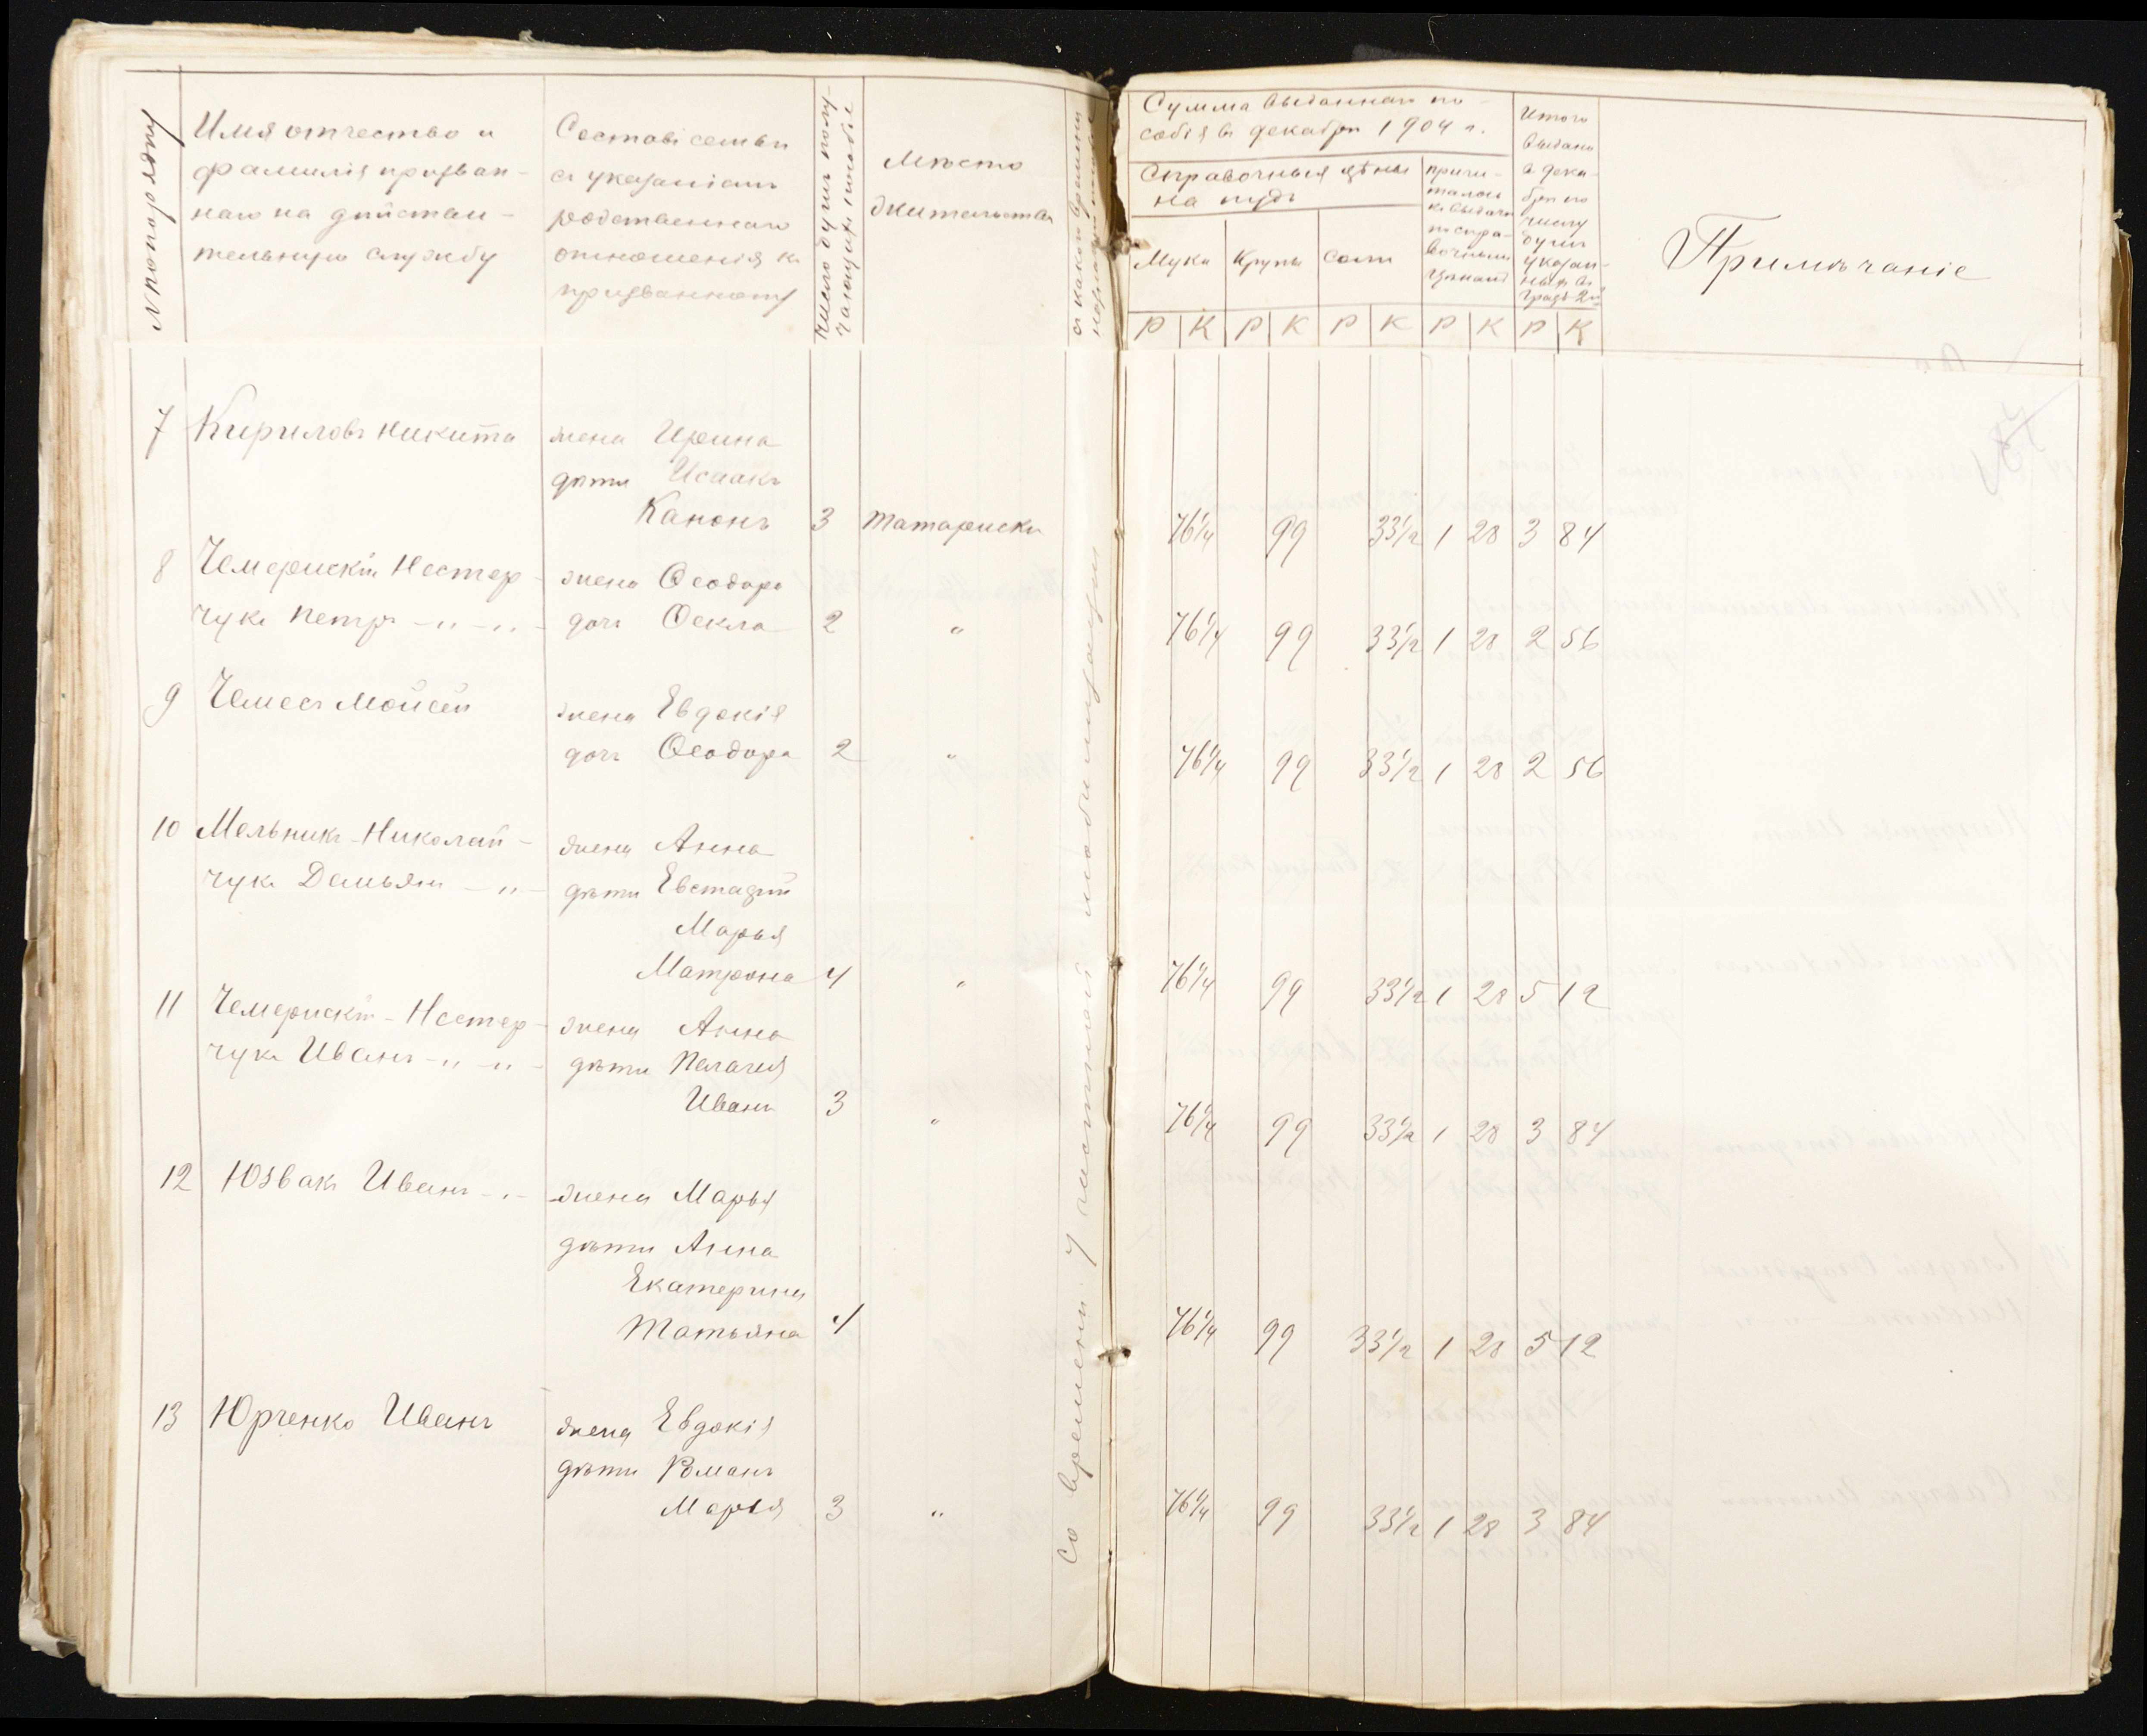 № по порядку
Имя отчество и
фамилія призван-
наго на действи-
тельную службу
Составъ семьи
съ указаніемъ
родственнаго
отношенія къ
призванному
Число душъ полу-
чающихъ пособіе
Мѣсто
жительства
съ какого времени
Сумма выданнаго по-
собія въ декабрѣ 1904 г.
Справочныя цѣны
на пудъ
Мука
Крупы
Соли
Причи-
талось
къ выдачѣ
по спра-
вочнымъ
цѣнамъ
Итого
выдано
въ дека-
брѣ по
числу
душъ
указан-
ныхъ въ
графѣ 2й
Примѣчаніе
Р К Р К Р К Р К Р К
7 Кириловъ Никита жена Ирина
дѣти Исаакъ
Канонъ 3 Татариски 76¼ 99 33½ 1 28 3 84
8 Чемерискій Нестер- жена Ѳеодора
чукъ Петръ -"-"- дочь Ѳекла 2 " 76¼ 99 33½ 1 28 2 56
9 Чемесъ Мойсей жена Евдокія
дочь Ѳеодора 2 " 76¼ 99 33½ 1 28 2 56
10 Мельникъ-Николай- жена Анна
чукъ Демьян -"- дѣти Евстафій
Марья
Матрона 4 " 76¼ 99 33½ 1 28 5 12
11 Чемерискій-Нестер- жена Анна
чукъ Иванъ -"-"- дѣти Пелагея
Иванъ 3 " 76¼ 99 33½ 1 28 3 84
12 Юзвакъ Иванъ -"- жена Марья
дѣти Анна
Екатерина
Татьяна 4 76¼ 99 33½ 1 28 5 12
13 Юрченко Иванъ жена Евдокія
дѣти Романъ
Марья 3 " 76¼ 99 33½ 1 28 3 84
Со времени 7 частной мобилизаціи